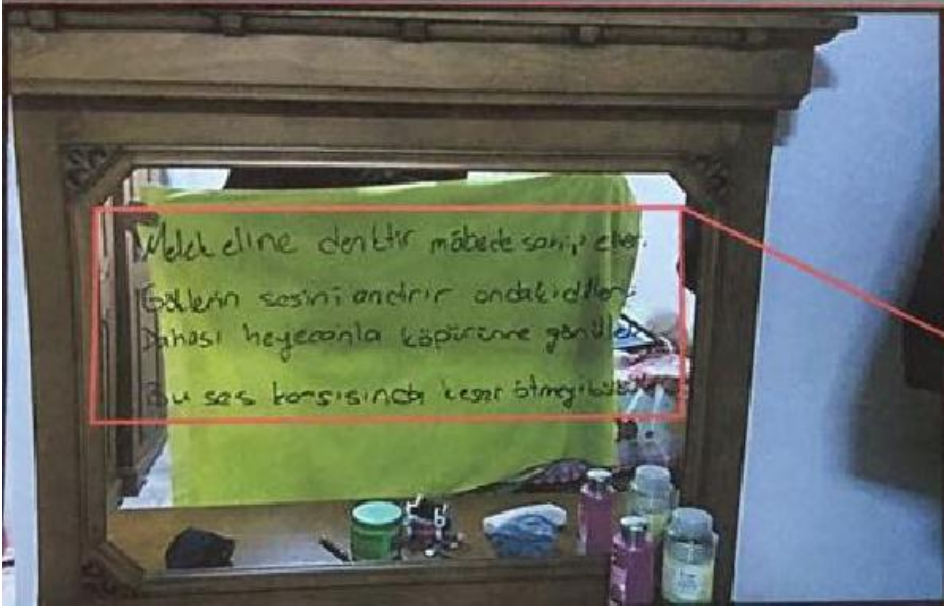 Melek eline denktir mâbede sahip eller.
Güllerin sesini andırır ondaki diller.
Dahası heyecanla köpürünce gönüller
Bu ses karşısında keser ötmeyi bülbüller